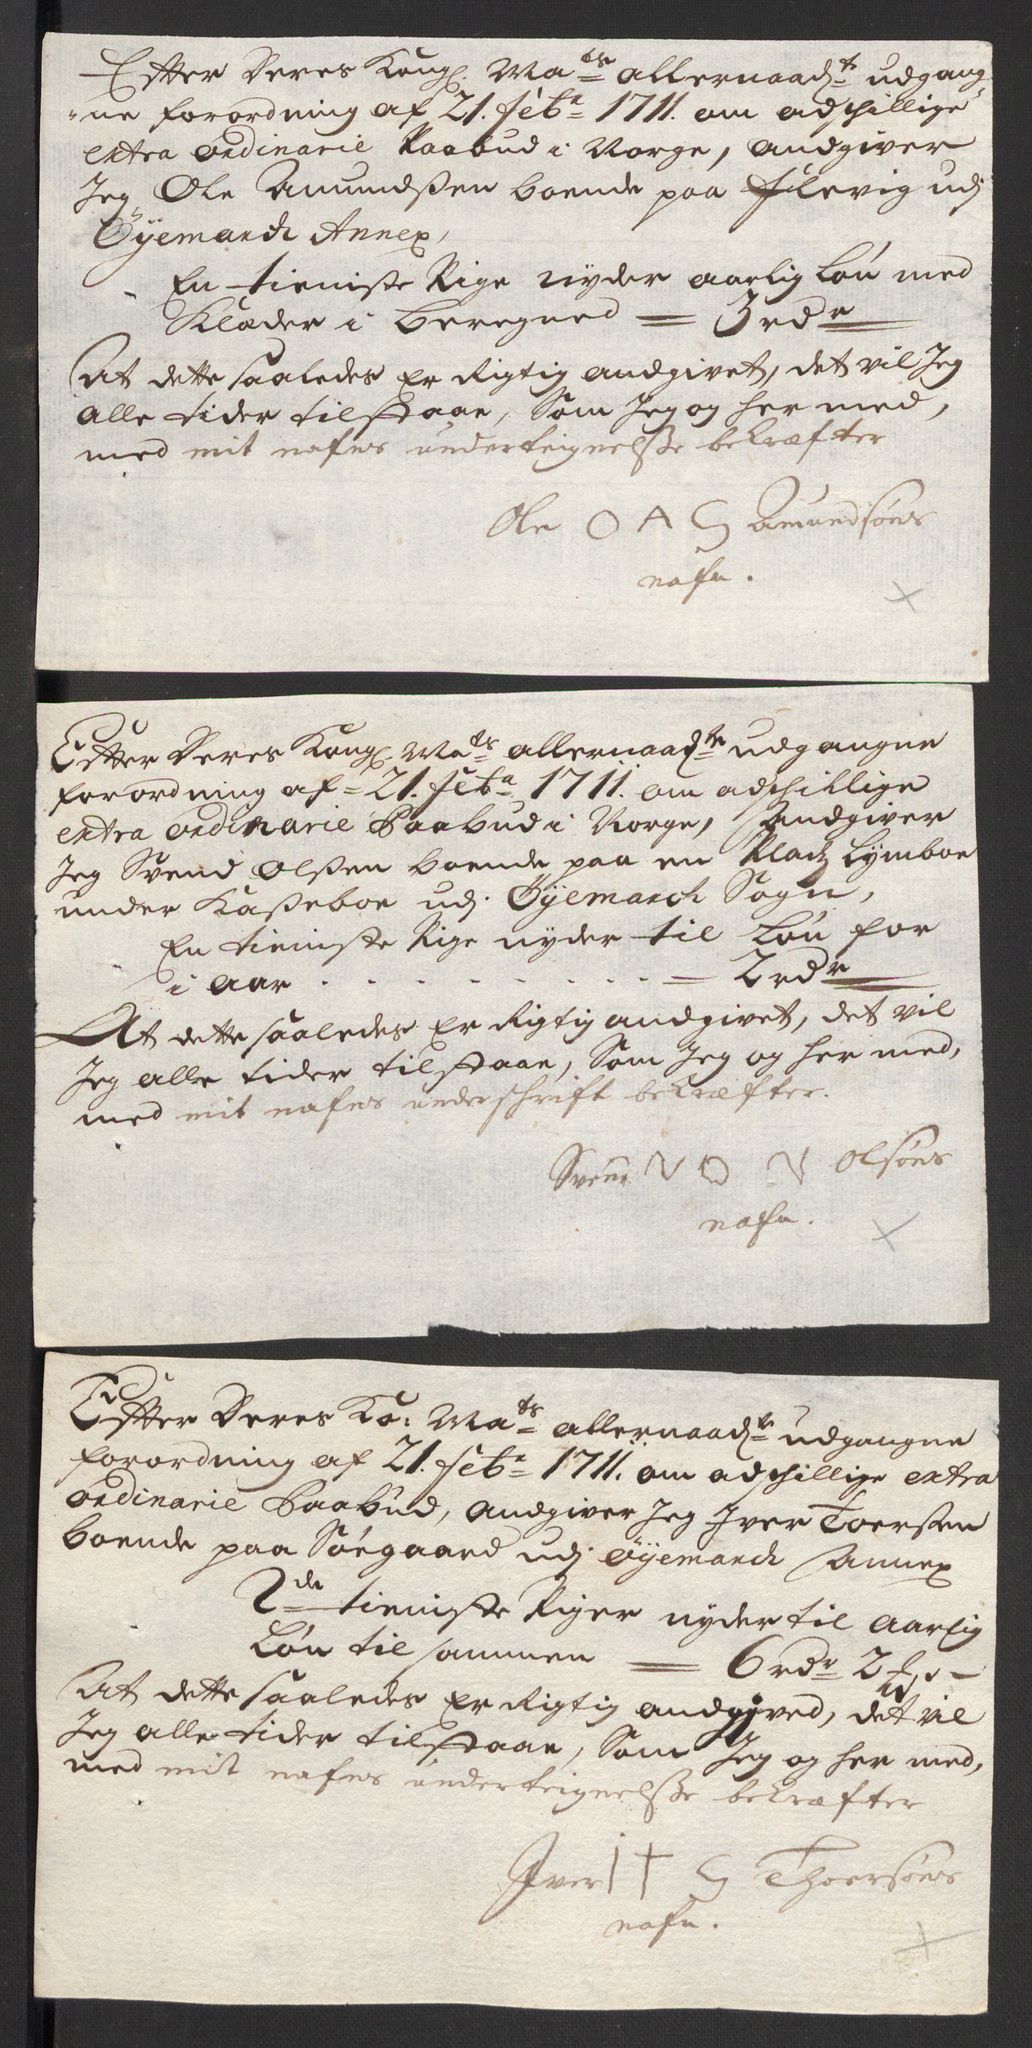 Efter Deres Kongl. Maᵗˢ allernaadᵗᵉ udgang
"ne forordning af 21. febᵃ 1711. om adschillige
extra ordinarie Paabud i Norge, andgiver
Jeg Ole Amundßen boende paa Flevig udj
Öÿemarch Annex,
En tieniste Pige nÿder aarlig Løn med
Klæder i beregned = 3 rdr
At dette saaledes Er Rigtig andgivet, det vil Jeg
alle tider tilstaae, Som Jeg og her med,
med mit nafns underteignelße bekræfter
Ole O A S Amundsøns
nafn.
Efter Deres Kongl. Maᵗˢ allernaadᵗᵉ udgangne
forordning af 21. febᵃ 1711. om adschillige
extra ordinarie Paabud i Norge, Andgiver
Jeg Svend Olßen boende paa en Platz Lÿmboe
under Kaßeboe udj Öÿemarch Sogn,
En tieniste Pige nÿder til Løn for
i aar . . . . . . . . = 2 rdr
At dette saaledes Er Rigtig andgivet, det vil
Jeg alle tider tilstaae, Som Jeg og her med,
med mit nafns underschrift bekræfter.
Svend Olsøns
nafn.
Efter Deres Ko: Maᵗˢ allernaadᵗᵉ udgangne
forordning af 21. febᵃ 1711. om adschillige extra
ordinarie Paabud, andgiver Jeg Iver Toerßen
boende paa Søegaard udj Öÿemarch Annex
2de tieniste Piger nÿder til aarlig
Løn til sammen = 6 rdr 2
At dette saaledes Er Rigtig andgived, det vil
Jeg alle tider tilstaae, Som Jeg og her med,
med mit nafns underteignelße bekræfter
Iver I T S Thoersøns
nafn.